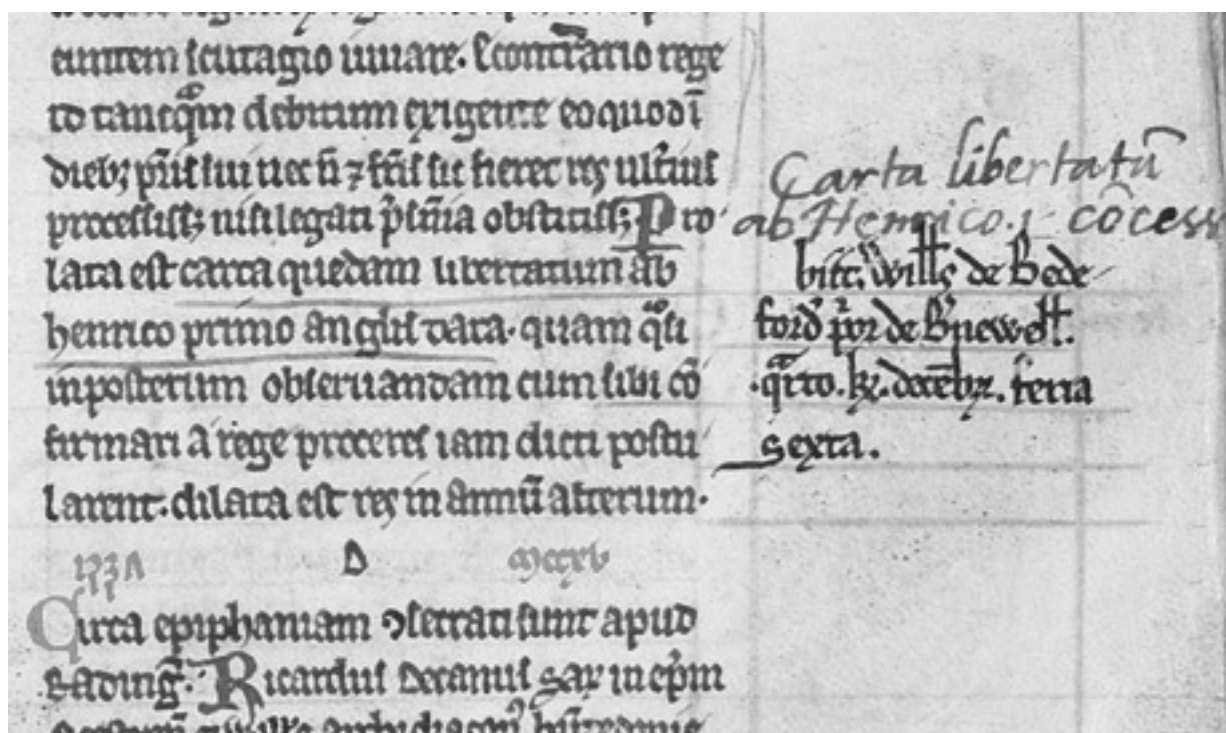 euntem scutagio iuuare. e contrario rege
id tanq̃m debitum exigente eo quod ĩ
dieb; pr̃is sui nec ñ ⁊ fr̃is sic fieret. res ulti᷑us
processiss; nisi legati p̃sñia obstitiss; Pro
lata est carta quedam libertatum ab
henrico primo anglis data. quam q̃si
inposterum obseruandam cum sibi cõ
firmari a rege proceres iam dicti postu
larent. dilata est res in annũ alterum.
D mccxv
Circa epiphaniam ꝯseccrati sunt apud
Rading̃. Ricardus decanus Sar̃ in ep̃m
Carta libertatũ
ab Henrico. 1. cõcess
Will̃s de Bede
ford p̃or de Br̃newell.
.q̃rto. kl̃. decẽbr̃. feria
sexta.